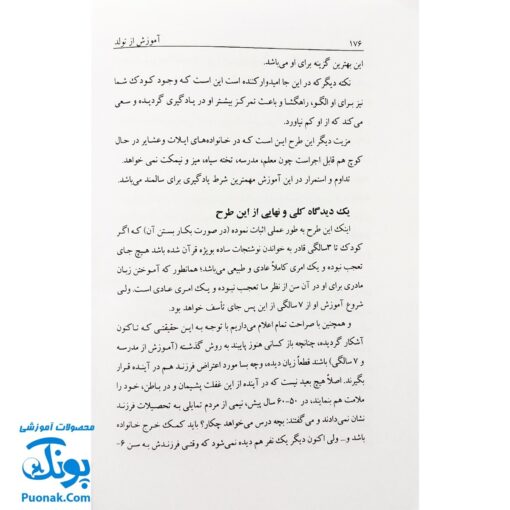 ۱۷۶ آموزش از تولد
این بهترین گزینه برای او می‌باشد.
نکته دیگر که در این جا امیدوار کننده است این است که وجود کودک شما
نیز برای او الگو، راهگشا و باعث تمرکز بیشتر او در یادگیری گردیده و سعی
می‌کند که از او کم نیاورد.
مزیت دیگر این طرح این است که در خانواده‌های ایلات و عشایر در حال
کوچ هم قابل اجراست چون معلم، مدرسه، تخته سیاه، میز و نیمکت نمی خواهد.
تداوم و استمرار در این آموزش مهمترین شرط یادگیری برای سالمند می‌باشد.
یک دیدگاه کلی و نهایی از این طرح
اینک این طرح به طور عملی اثبات نموده (در صورت بکار بستن آن) که اگر
کودک تا ۳سالگی قادر به خواندن نوشتجات ساده بویژه قرآن شده باشد هیچ جای
تعجب نبوده و یک امری کاملاً عادی و طبیعی می‌باشد؛ همانطور که آموختن زبان
مادری برای او در آن سن از نظر ما تعجب نبوده و یک امری عادی است. ولی
شروع آموزش او از ۷ سالگی از این پس جای تأسف خواهد بود.
و همچنین با صراحت تمام اعلام می‌داریم با توجه به این حقیقتی که تاکنون
آشکار گردیده، چنانچه باز کسانی هنوز پایبند به روش گذشته (آموزش از مدرسه
و ۷ سالگی) باشند قطعاً زیان دیده، وچه بسا مورد اعتراض فرزند هم در آینده قرار
بگیرند. اصلاً هیچ بعید نیست که در آینده از این غفلت پشیمان و در باطن، خود را
ملامت هم بنمایند، در ۵۰-۶۰ سال پیش، نیمی از مردم تمایلی به تحصیلات فرزند
نشان نمی‌دادند و می‌گفتند: بچه درس می‌خواهد چکار؟ باید کمک خرج خانواده
باشد و... ولی اکنون دیگر یک نفر هم دیده نمی‌شود که وقتی فرزندش به سن ۶-
محصولات آموزشی
پونک
Puonak.Com